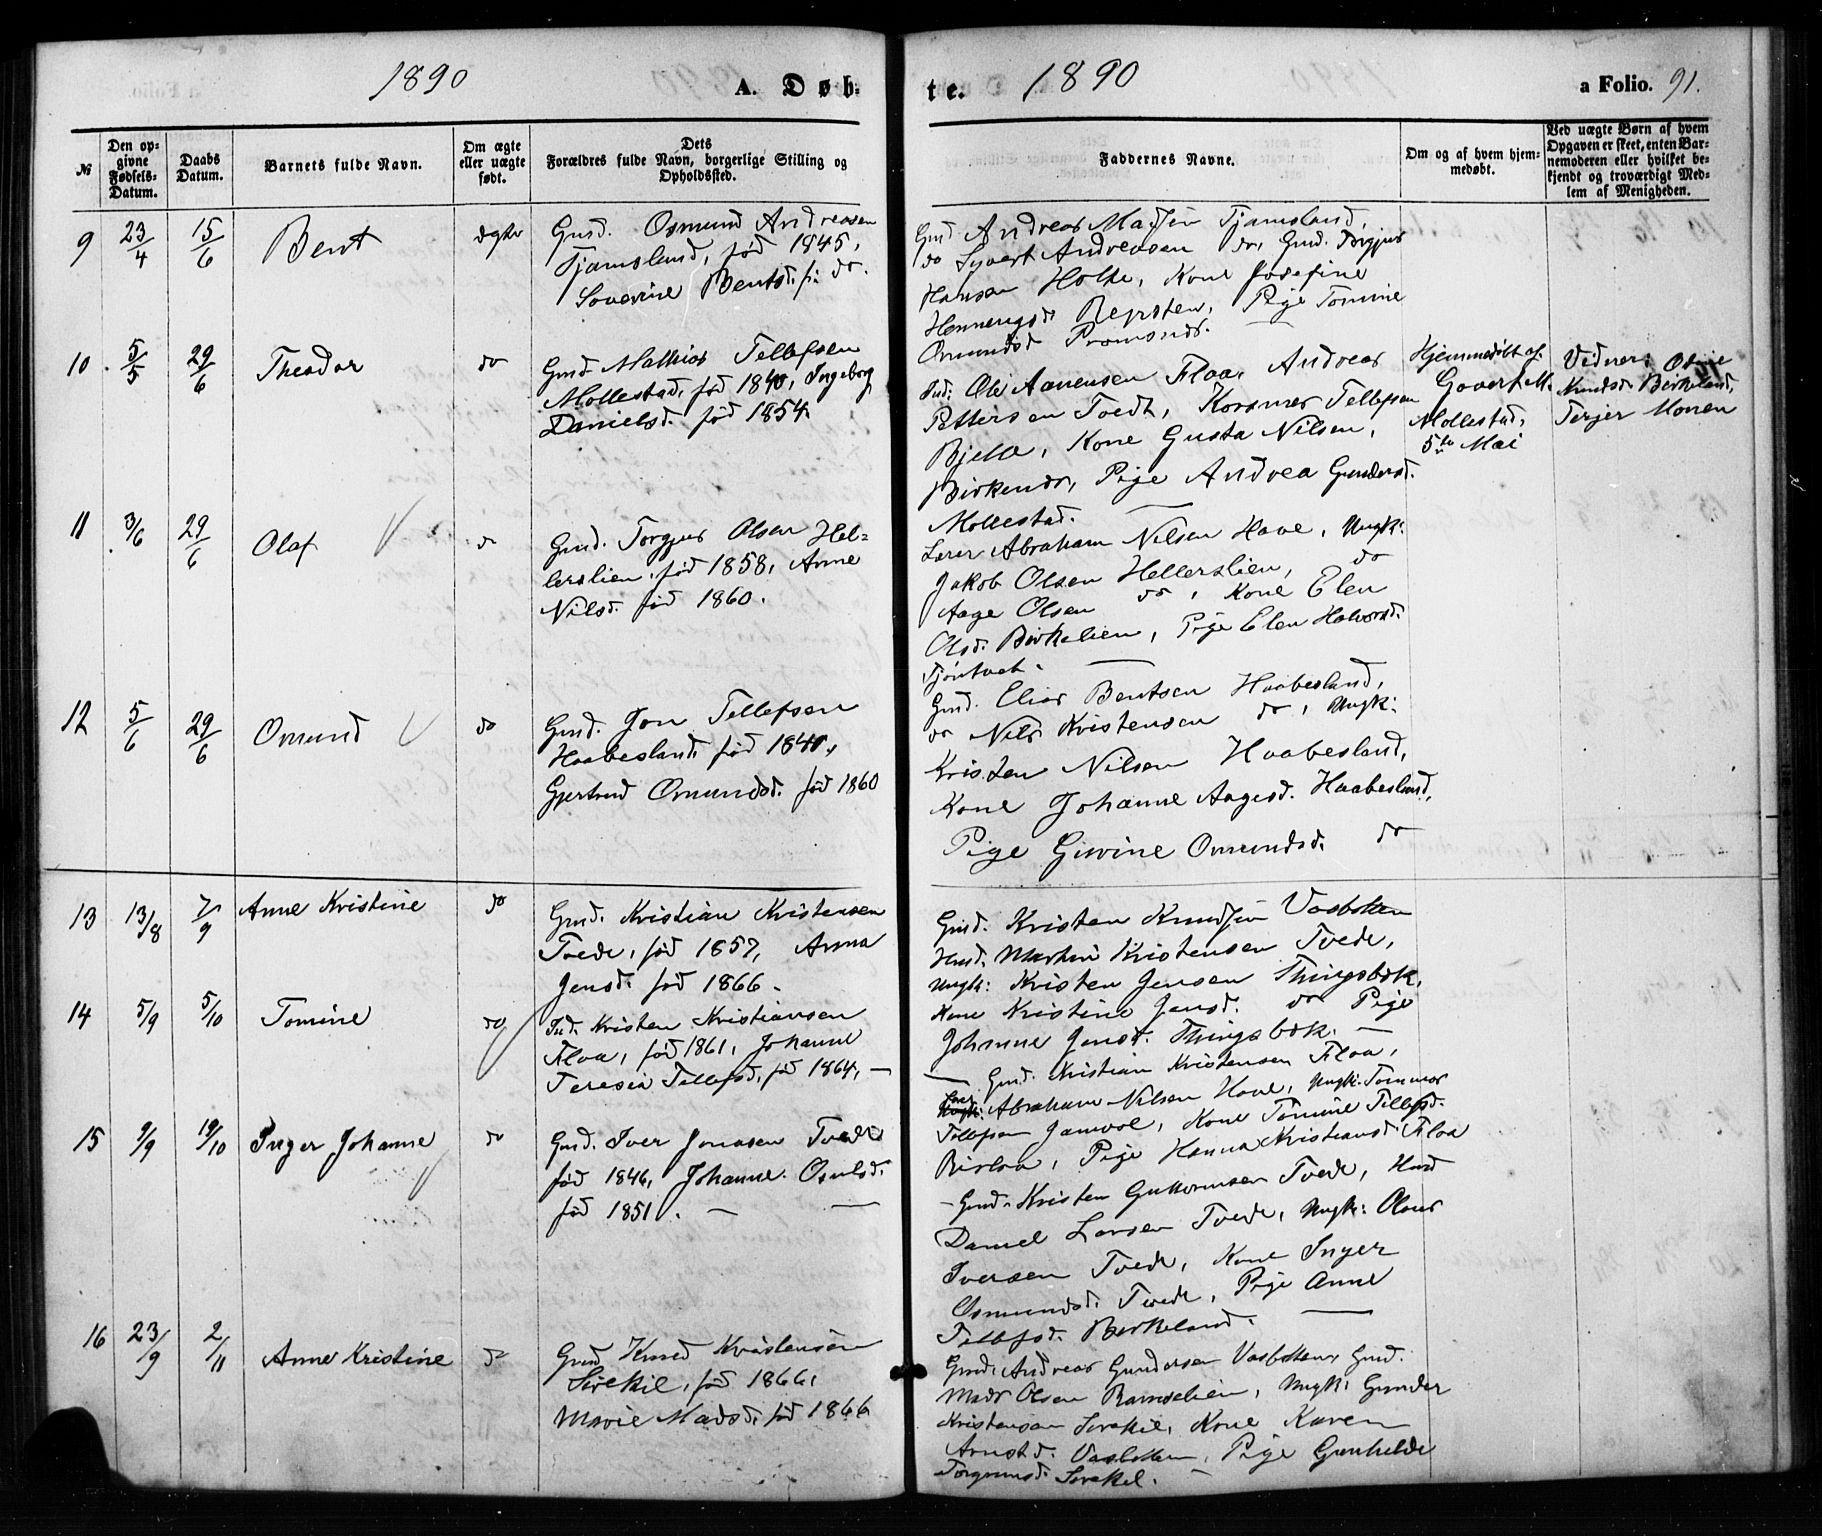 1890 A. Døb-
te. 1890 a Folio. 91.
№
Den op-
givne
Fødsels-
Datum.
Daabs
Datum.
Barnets fulde Navn.
Om ægte
eller uægte
født.
Dets
Forældres fulde Navn, borgerlige Stilling og
Opholdssted.
Faddernes Navne.
Om og af hvem hjem-
medøbt.
Ved uægte Børn af hvem
Opgaven er skeet, enten Bar-
nemoderen eller hvilket be-
kjendt og troværdigt Med-
lem af Menigheden.
9 23/4 15/6 Bent ægte
Gmd. Osmund Andreasen
Tjamsland, fød 1845,
Severine Bentsd. do.
Gmd Andreas Madsen Tjamsland,
do Syvert Andreasen do, Gmd. Torgjus
Hansen Holte, Kone Josefine
Henningsd. Repsten, Pige Tomine
Omundsd
10. 5/5 29/6 Theodor do
Gmd Mathias Tellefsen
Mollestad, fød 1840, Ingeborg
Danielsd. fød 1854.
Ind: Ole Aanensen Flaa, Andreas
Pettersen Tvedt, Tellefsen
Kone Gusta Nilsen,
Birkenes, Pige Andrea Gundersd.
Mollestad.
Hjemmedøbt af
Govert M.
Mollestad,
5te Mai
Vidner:
Knudsd. Birkeland,
Terjer Monen
11 3/6 29/6 Olaf do
Gmd. Torgjus Olsen Hel-
lerslien, fød 1858, Anne
Nilsd. fød 1860.
Lærer Abraham Nilsen Hove, Ungk:
Jakob Olsen Hellerslien, do
Aage Olsen do, Kone Elen
Olsd. Birkelien, Pige Elen Halvorsd.
12 5/6 29/6 Omund do
Gmd. Jon Tellefsen
Haabesland fød 1840,
Gjertrud Omundsd. fød 1860
Gmd. Elias Bentsen Haabesland,
do Nils Kristensen do, Ungk:
Kristen Nilsen Haabesland,
Kone Johanne Aagesd. Haabesland,
Pige Givine Omundsd. do
13 13/8 7/9 Anne Kristine do
Gmd. Kristian Kristensen
Tvede, fød 1857, Anna
Jensd. fød 1866.
Gmd. Kristen Knudsen Vasbotten
Husd. Martin Kristensen Tvede,
Ungk: Kristen Jensen Thingsbæk,
Kone Kristine Jensd. do Pige
Johanne Jensd. Thingsbæk.
14 5/9 5/10 Tomine do
Ind. Kristen Kristiansen
Flaa, fød 1861, Johanne
Teresia Tellefsd. fød 1864,
Gmd. Kristian Kristensen Flaa,
Lær Abraham Nilsen Hove, Ungk: Tommas
Tellefsen Kone Tomine Tellefsd.
Pige Hanna Kristiansd. Flaa
15 9/9 19/10 Inger Johanne do
Gmd. Iver Jonasen Tvede
fød 1846, Johanne
fød 1851.
Gmd. Kristen Guttormsen Tvede, Husd
Daniel Larsen Tvede, Ungk: Olaus
Iversen Tvede, Kone Inger
Osmundsd. Tvede, Pige Anne
Tellefsd. Birkeland.
16 23/9 2/11 Anne Kristine do
Gmd Knud Kristensen
Sirekil, fød 1866,
Marie Madsd. fød 1866
Gmd. Andreas Gundersen Vasbotten Gmd.
Mads Olsen Ramselien, Ungk: Gunder
Kristensen Sirekil, Kone Karen
Vasbotten, Pige Gunhilde
Sirekil.